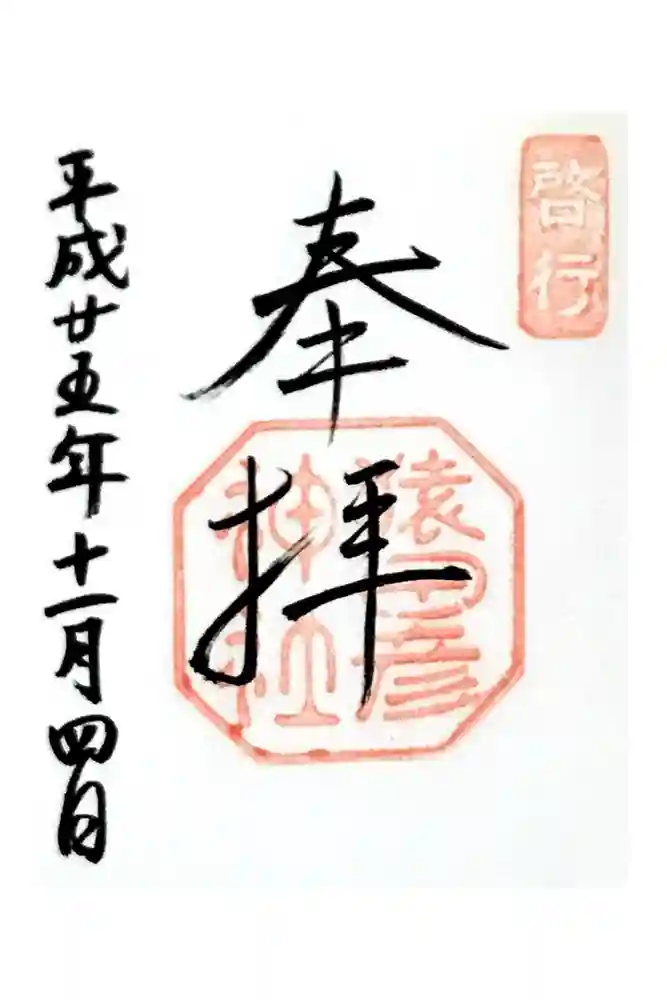 啓行
奉拝
猿田彦
神社
平成廿五年十一月四日